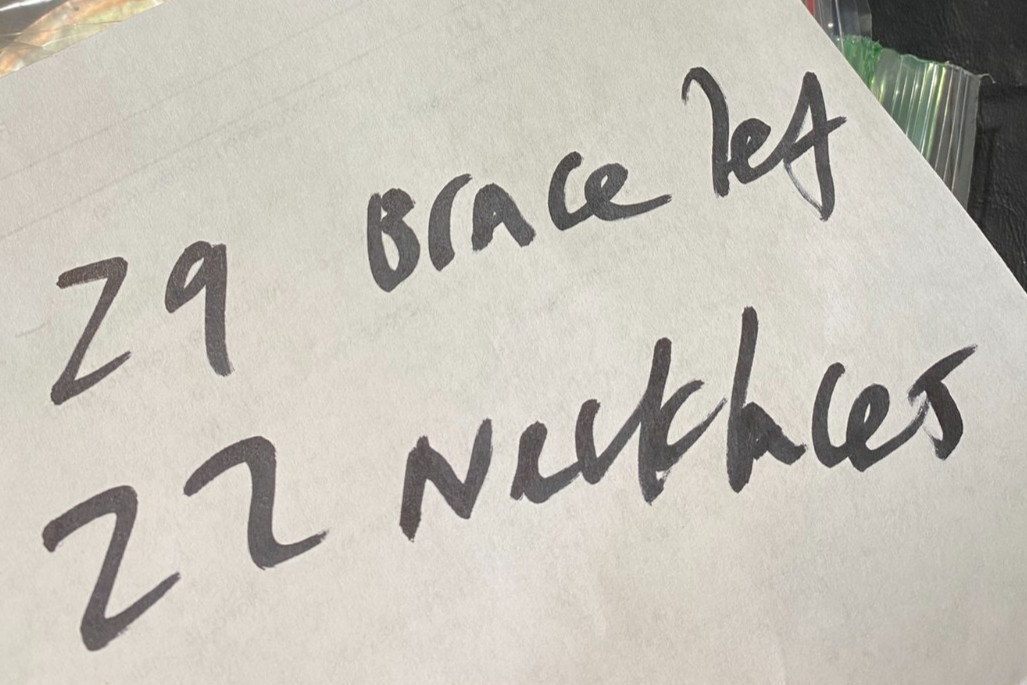 29 Bracelet
22 Necklaces